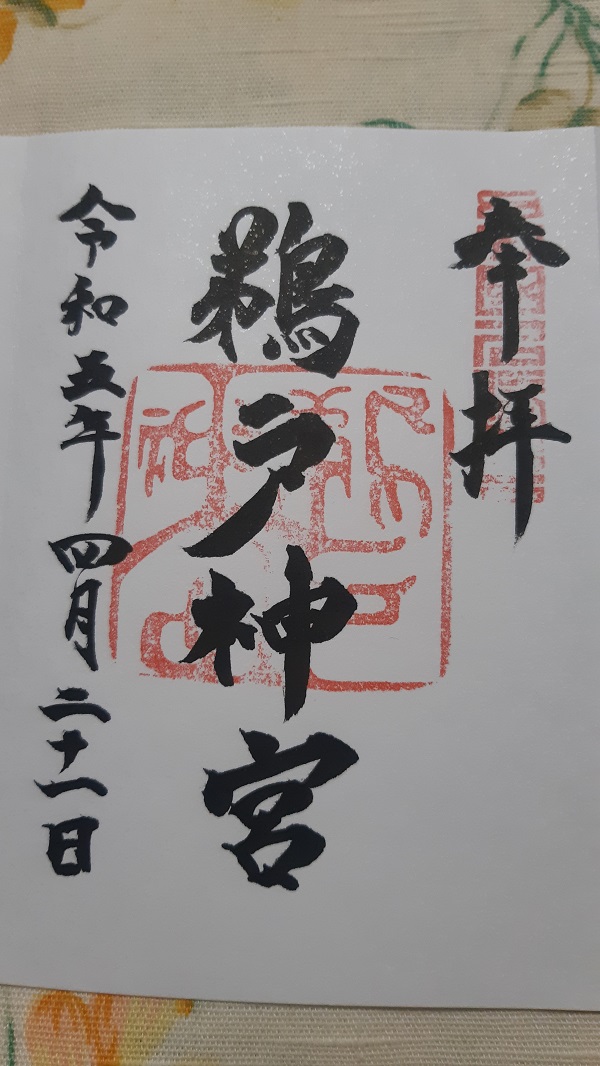 奉拝
鵜戸神宮
令和五年四月二十一日